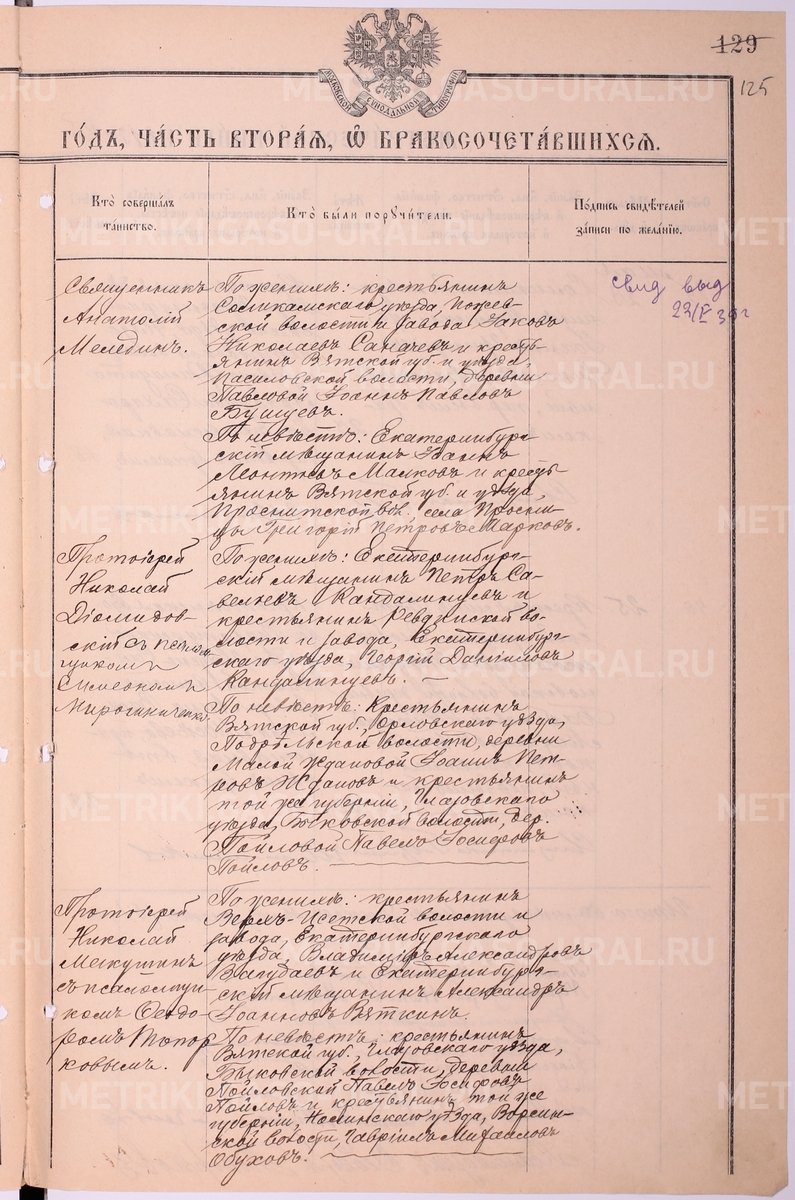 129
125
МОСКОВСКОЙ СИНОДАЛЬНОЙ ТИПОГРАФІИ
ГО́ДЪ, ЧА́СТЬ ВТОРА́Я, Ѡ҆ БРАКОСОЧЕТА́ВШИХСЯ.
Кто̀ соверша́лъ
та́инство.
Кто̀ бы́ли порꙋчи́тели.
По́дпись свидѣ́телей
за́писи по жела́нїю.
Священникъ
Анатолій
Мелединъ.
По женихѣ: крестьянинъ
Соликамскаго уѣзда, Пожев-
ской волости и завода Іаковъ
Николаевъ Саначевъ и кресть-
янинъ Вятской губ. и уѣзда,
Пасиловской волости, деревни
Павловой Іоаннъ Павловъ
Бушуевъ.
По невѣстѣ: Екатеринбург-
скій мѣщанинъ Іоаннъ
Леонтьевъ Малковъ и кресть-
янинъ Вятской губ. и уѣзда,
Просницкой вол. села Просни-
цы Григорій Петровъ Марковъ.
свид выд
23/V 39 г
Протоіерей
Николай
Діомидов-
скій съ псалом-
щикомъ
Симеономъ
Мирошниченко
По женихѣ: Екатеринбург-
скій мѣщанинъ Петръ Са-
вельевъ Кандалинцевъ и
крестьянинъ Ревдинской во-
лости и завода, Екатеринбург-
скаго уѣзда, Георгій Даніиловъ
Кандалинцевъ. —
По невѣстѣ: Крестьянинъ
Вятской губ., Орловскаго уѣзда,
Подрѣльской волости, деревни
Малой Ждановой Іоаннъ Пет-
ровъ Ждановъ и крестьянинъ
той же губерніи, Глазовскаго
уѣзда, Бѣлковской волости, дер.
Пойловой Павелъ Іосифовъ
Пойловъ.
Протоіерей
Николай
Мекушинъ
съ псаломщи-
комъ Ѳеодо-
ромъ Топор-
ковымъ.
По женихѣ: крестьянинъ
Верхъ-Исетской волости и
завода, Екатеринбургскаго
уѣзда, Владиміръ Александровъ
Вагудаевъ и Екатеринбург-
скій мѣщанинъ Александръ
Іоанновъ Вяткинъ.
По невѣстѣ: крестьянинъ
Вятской губ., Глазовскаго уѣзда,
волости, деревни
Пойловской Павелъ Іосифовъ
Пойловъ и крестьянинъ той же
губерніи, Нолинскаго уѣзда,
ской волости, Гавріилъ Михаиловъ
Обуховъ.
METRIKI.UASO-URAL.RU